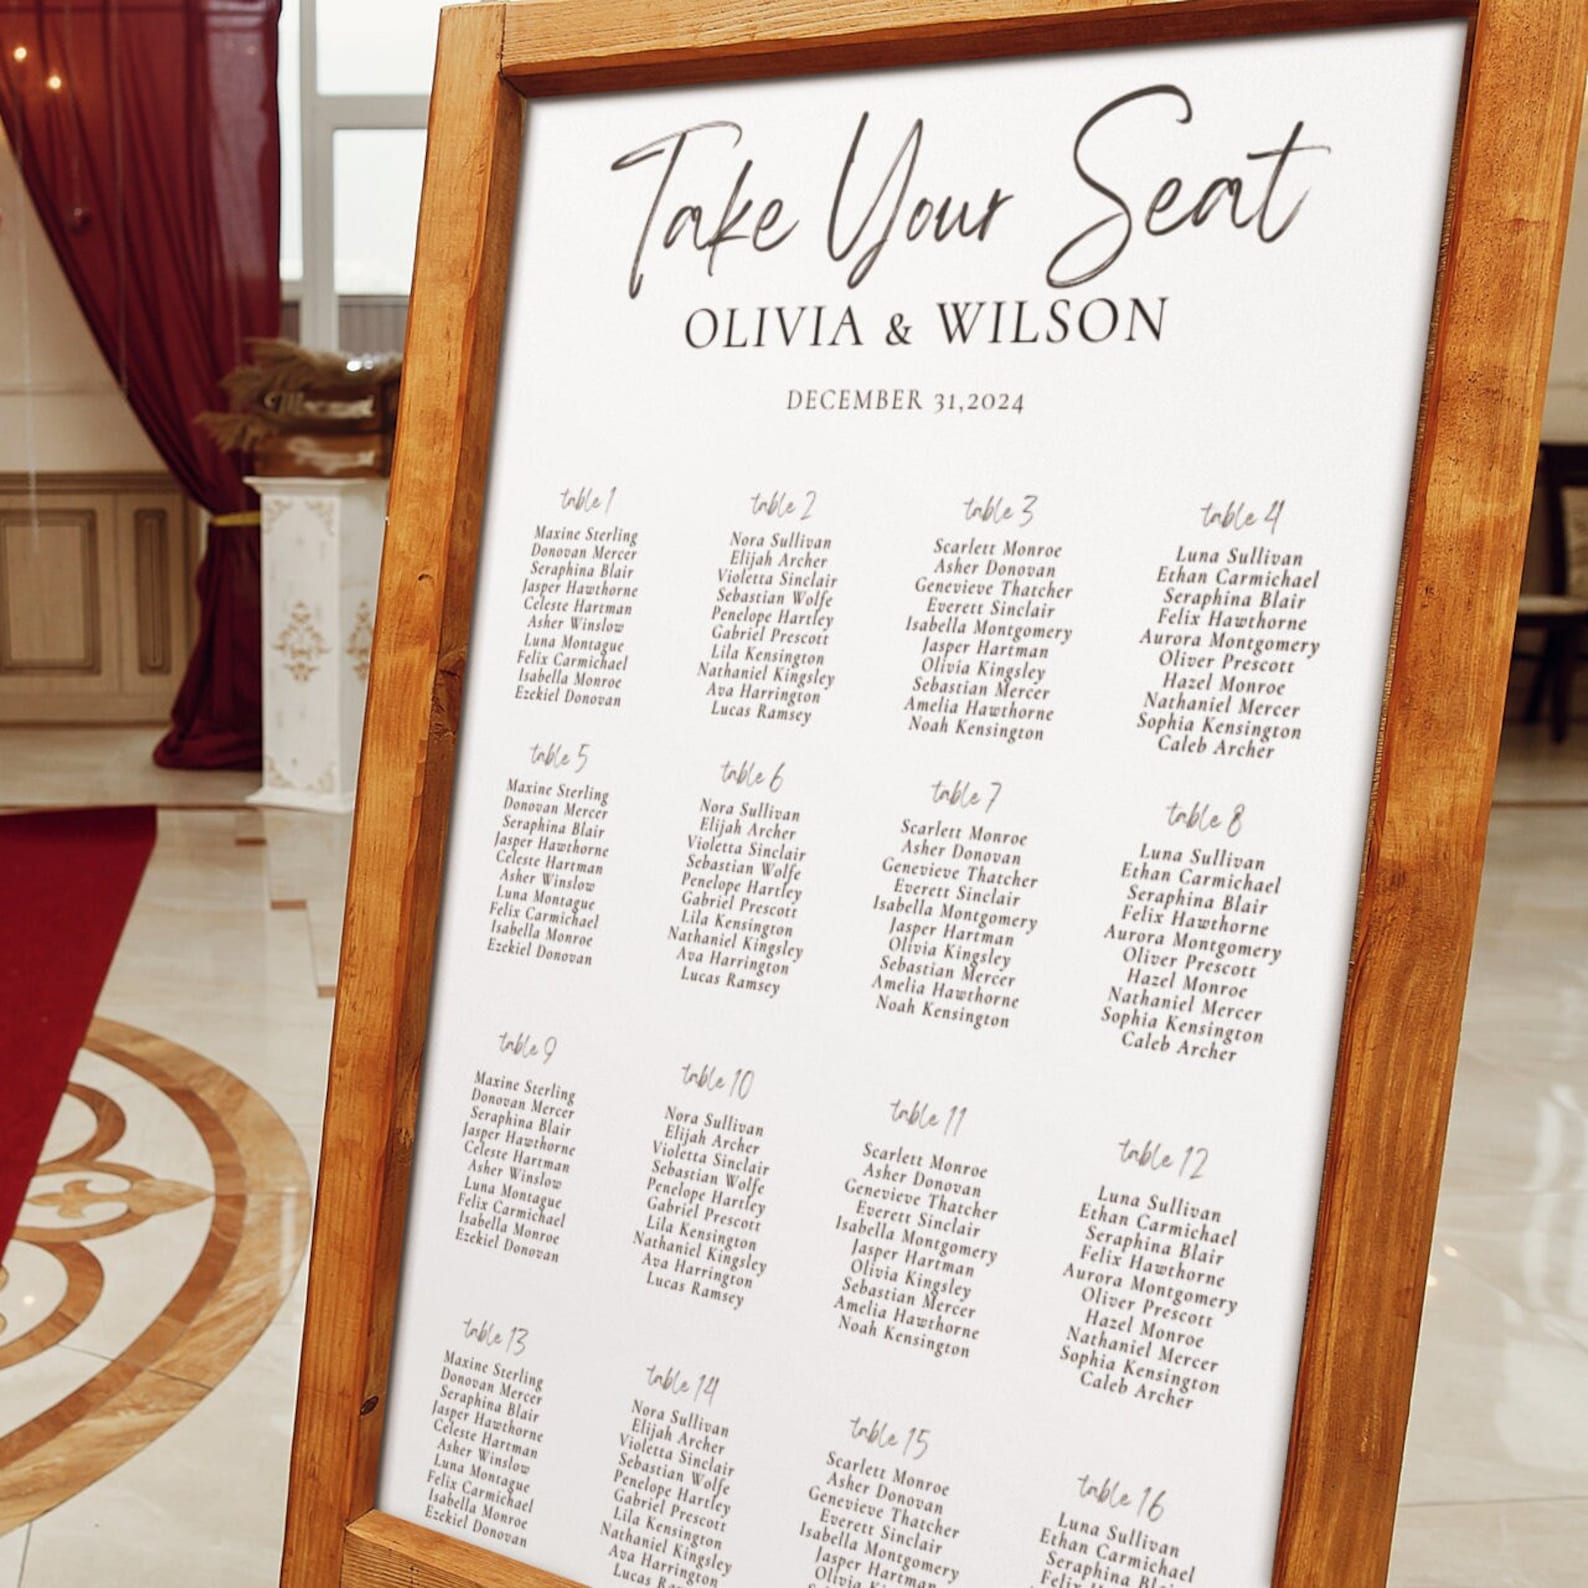 Take Your Seat
OLIVIA & WILSON
DECEMBER 31,2024
table 1
Maxine Sterling
Donovan Mercer
Seraphina Blair
Jasper Hawthorne
Celeste Hartman
Asher Winslow
Luna Montague
Felix Carmichael
Isabella Monroe
Ezekiel Donovan
table 2
Nora Sullivan
Elijah Archer
Violetta Sinclair
Sebastian Wolfe
Penelope Hartley
Gabriel Prescott
Lila Kensington
Nathaniel Kingsley
Ava Harrington
Lucas Ramsey
table 3
Scarlett Monroe
Asher Donovan
Genevieve Thatcher
Everett Sinclair
Isabella Montgomery
Jasper Hartman
Olivia Kingsley
Sebastian Mercer
Amelia Hawthorne
Noah Kensington
table 4
Luna Sullivan
Ethan Carmichael
Seraphina Blair
Felix Hawthorne
Aurora Montgomery
Oliver Prescott
Hazel Monroe
Nathaniel Mercer
Sophia Kensington
Caleb Archer
table 5
Maxine Sterling
Donovan Mercer
Seraphina Blair
Jasper Hawthorne
Celeste Hartman
Asher Winslow
Luna Montague
Felix Carmichael
Isabella Monroe
Ezekiel Donovan
table 6
Nora Sullivan
Elijah Archer
Violetta Sinclair
Sebastian Wolfe
Penelope Hartley
Gabriel Prescott
Lila Kensington
Nathaniel Kingsley
Ava Harrington
Lucas Ramsey
table 7
Scarlett Monroe
Asher Donovan
Genevieve Thatcher
Everett Sinclair
Isabella Montgomery
Jasper Hartman
Olivia Kingsley
Sebastian Mercer
Amelia Hawthorne
Noah Kensington
table 8
Luna Sullivan
Ethan Carmichael
Seraphina Blair
Felix Hawthorne
Aurora Montgomery
Oliver Prescott
Hazel Monroe
Nathaniel Mercer
Sophia Kensington
Caleb Archer
table 9
Maxine Sterling
Donovan Mercer
Seraphina Blair
Jasper Hawthorne
Celeste Hartman
Asher Winslow
Luna Montague
Felix Carmichael
Isabella Monroe
Ezekiel Donovan
table 10
Nora Sullivan
Elijah Archer
Violetta Sinclair
Sebastian Wolfe
Penelope Hartley
Gabriel Prescott
Lila Kensington
Nathaniel Kingsley
Ava Harrington
Lucas Ramsey
table 11
Scarlett Monroe
Asher Donovan
Genevieve Thatcher
Everett Sinclair
Isabella Montgomery
Jasper Hartman
Olivia Kingsley
Sebastian Mercer
Amelia Hawthorne
Noah Kensington
table 12
Luna Sullivan
Ethan Carmichael
Seraphina Blair
Felix Hawthorne
Aurora Montgomery
Oliver Prescott
Hazel Monroe
Nathaniel Mercer
Sophia Kensington
Caleb Archer
table 13
Maxine Sterling
Donovan Mercer
Seraphina Blair
Jasper Hawthorne
Celeste Hartman
Asher Winslow
Luna Montague
Felix Carmichael
Isabella Monroe
Ezekiel Donovan
table 14
Nora Sullivan
Elijah Archer
Violetta Sinclair
Sebastian Wolfe
Penelope Hartley
Gabriel Prescott
Lila Kensington
Nathaniel Kingsley
Ava Harrington
Lucas
table 15
Scarlett Monroe
Asher Donovan
Genevieve Thatcher
Everett Sinclair
Isabella Montgomery
Jasper Hartman
Olivia
table 16
Luna Sullivan
Ethan Carmichael
Seraphina
Felix